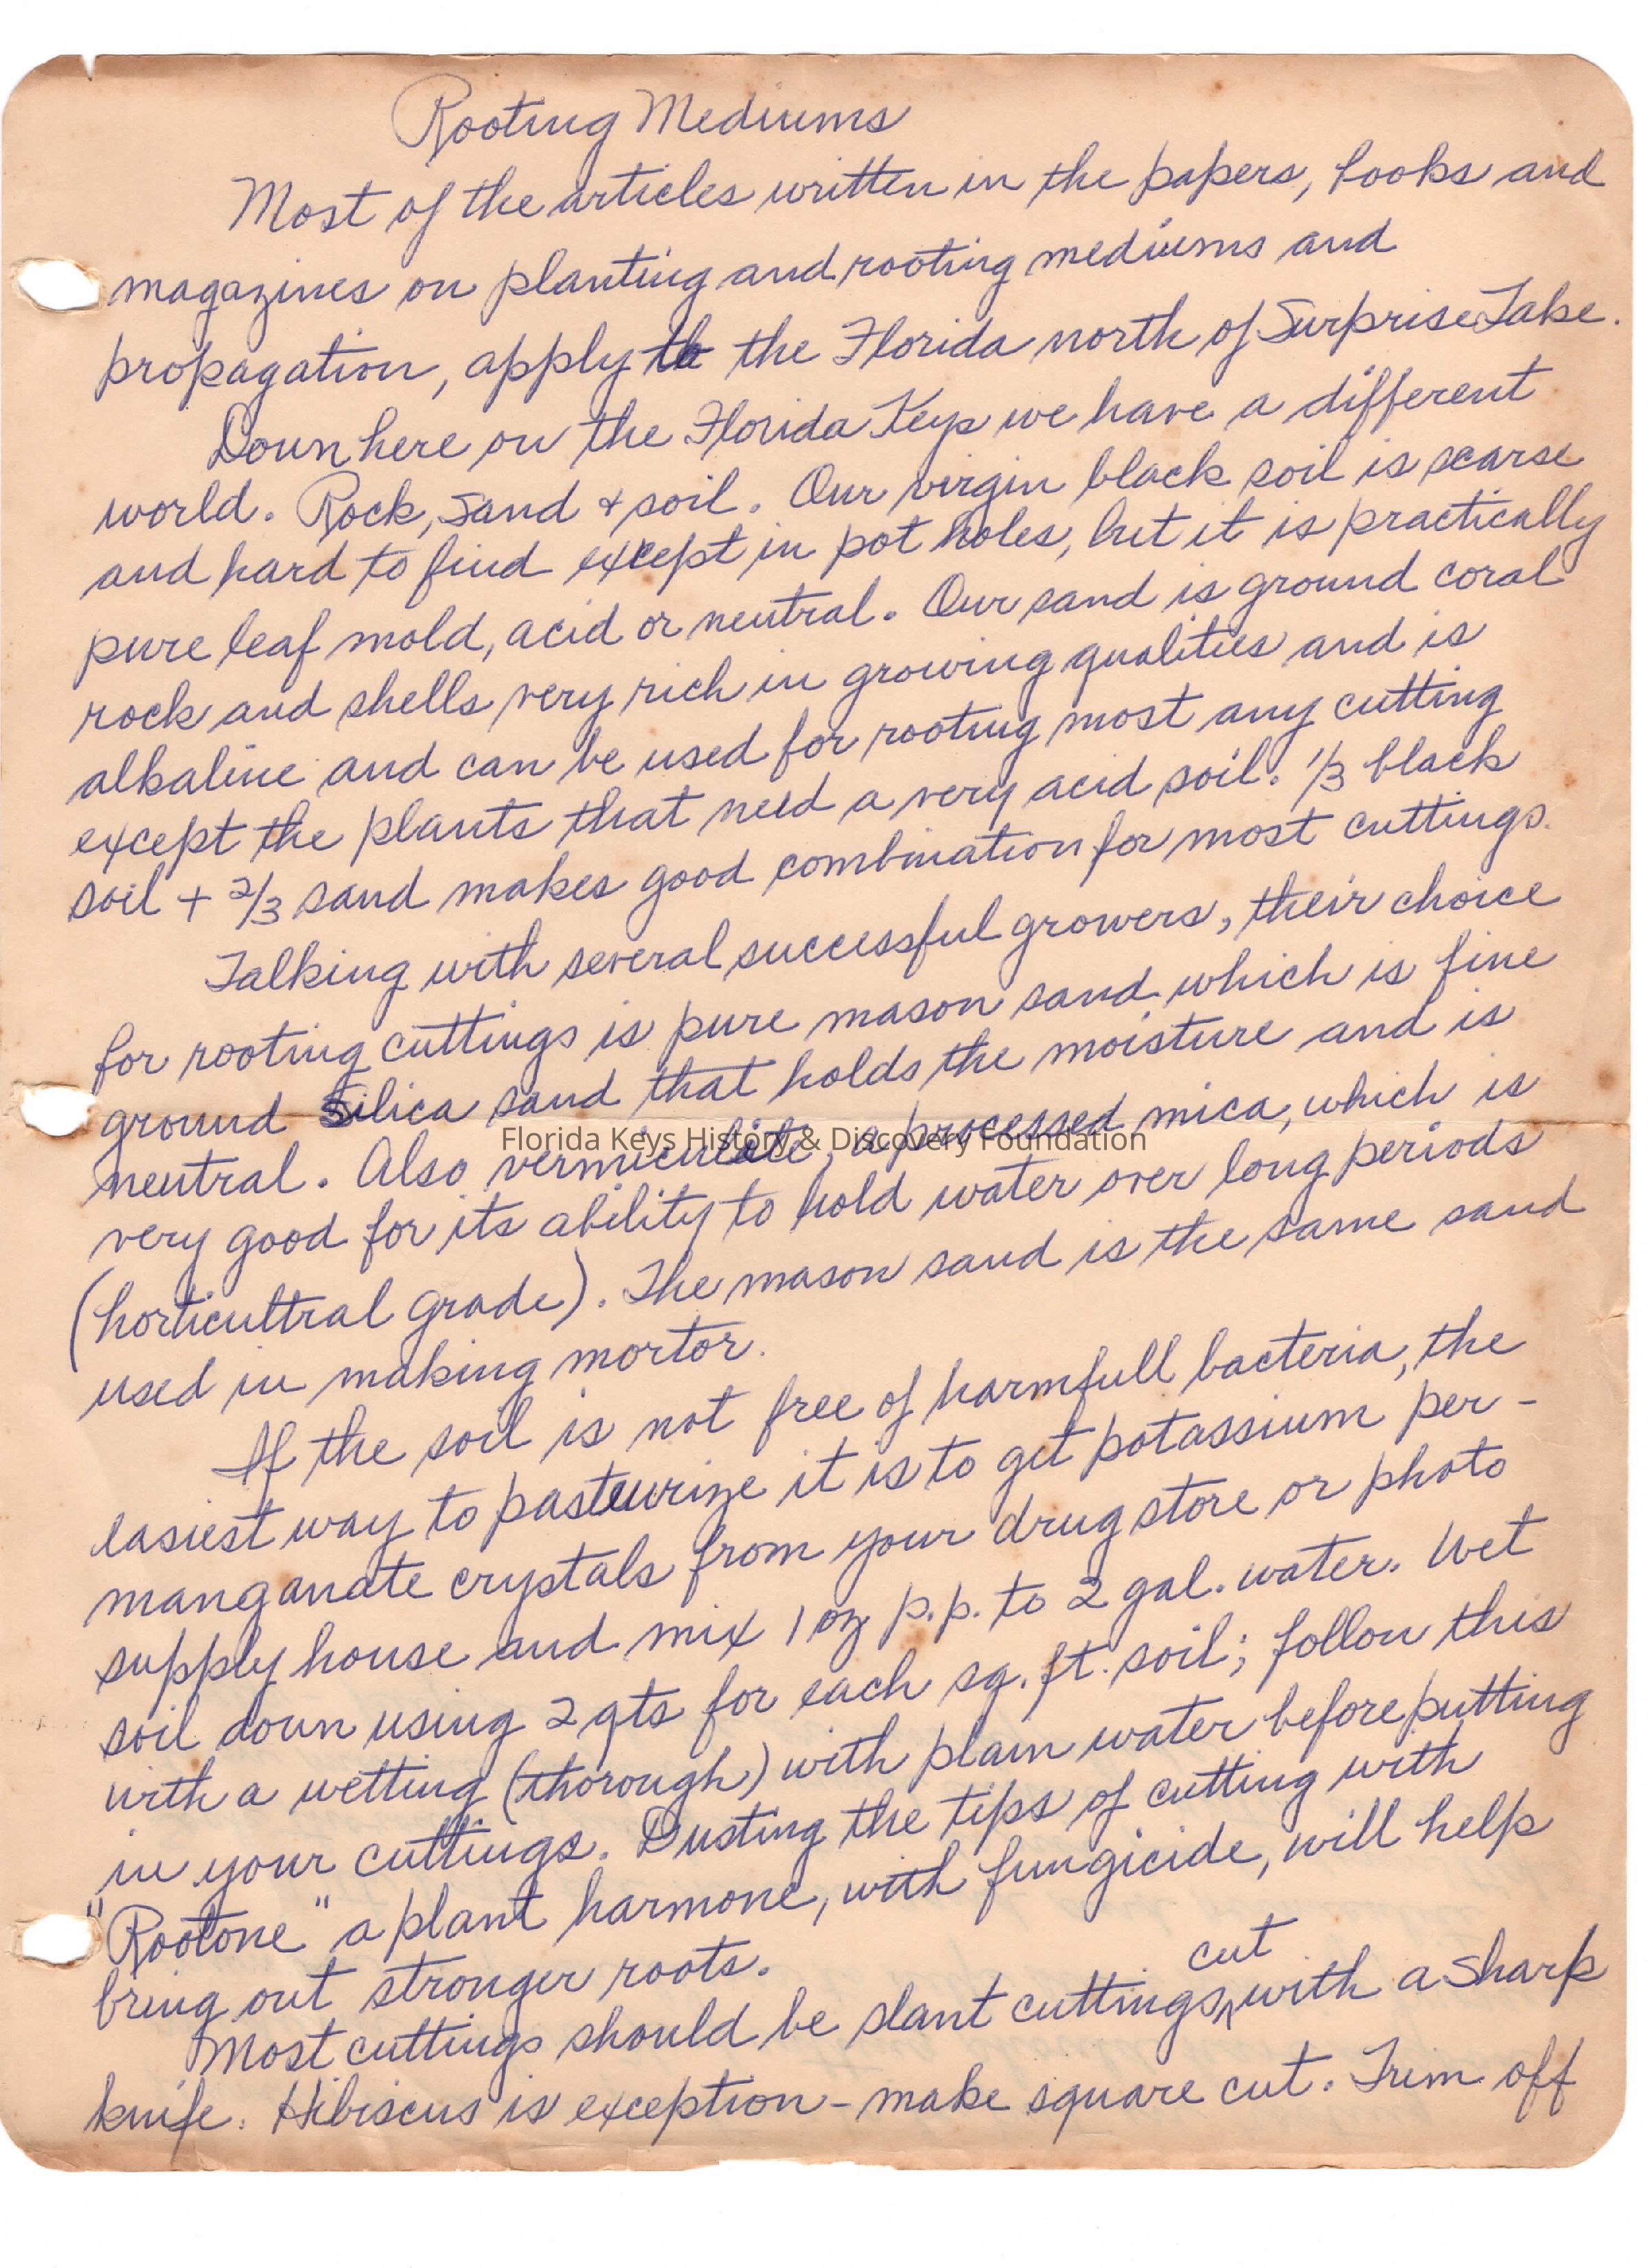 Rooting Mediums
Most of the articles written in the papers, books and
magazines on planting and rooting mediums and
propagation, apply to the Florida north of Surprise Lake.
Down here on the Florida Keys we have a different
world. Rock, sand & soil. Our virgin black soil is scarse
and hard to find except in pot holes, but it is practically
pure leaf mold, acid or neutral. Our sand is ground coral
rock and shells very rich in growing qualities and is
alkaline and can be used for rooting most any cutting
except the plants that need a very acid soil. 1/3 black
soil + 2/3 sand makes good combination for most cuttings.
Talking with several successful growers, their choice
for rooting cuttings is pure mason sand which is fine
ground silica sand that holds the moisture and is
neutral. Also vermiculite, a processed mica, which is
Florida Keys History & Discovery Foundation
very good for its ability to hold water over long periods
(horticultral grade). The mason sand is the same sand
used in making mortor.
If the soil is not free of harmfull bacteria, the
easiest way to pasteurize it is to get potassium per-
manganate crystals from your drug store or photo
supply house and mix 1 oz p.p. to 2 gal. water. Wet
soil down using 2 qts for each sq. ft. soil; follow this
with a wetting (thorough) with plain water before putting
in your cuttings. Dusting the tips of cutting with
"Rootone" a plant harmone, with fungicide, will help
bring out stronger roots.
Most cuttings should be slant cuttings, cut with a sharp
knife. Hibiscus is exception - make square cut. Trim off